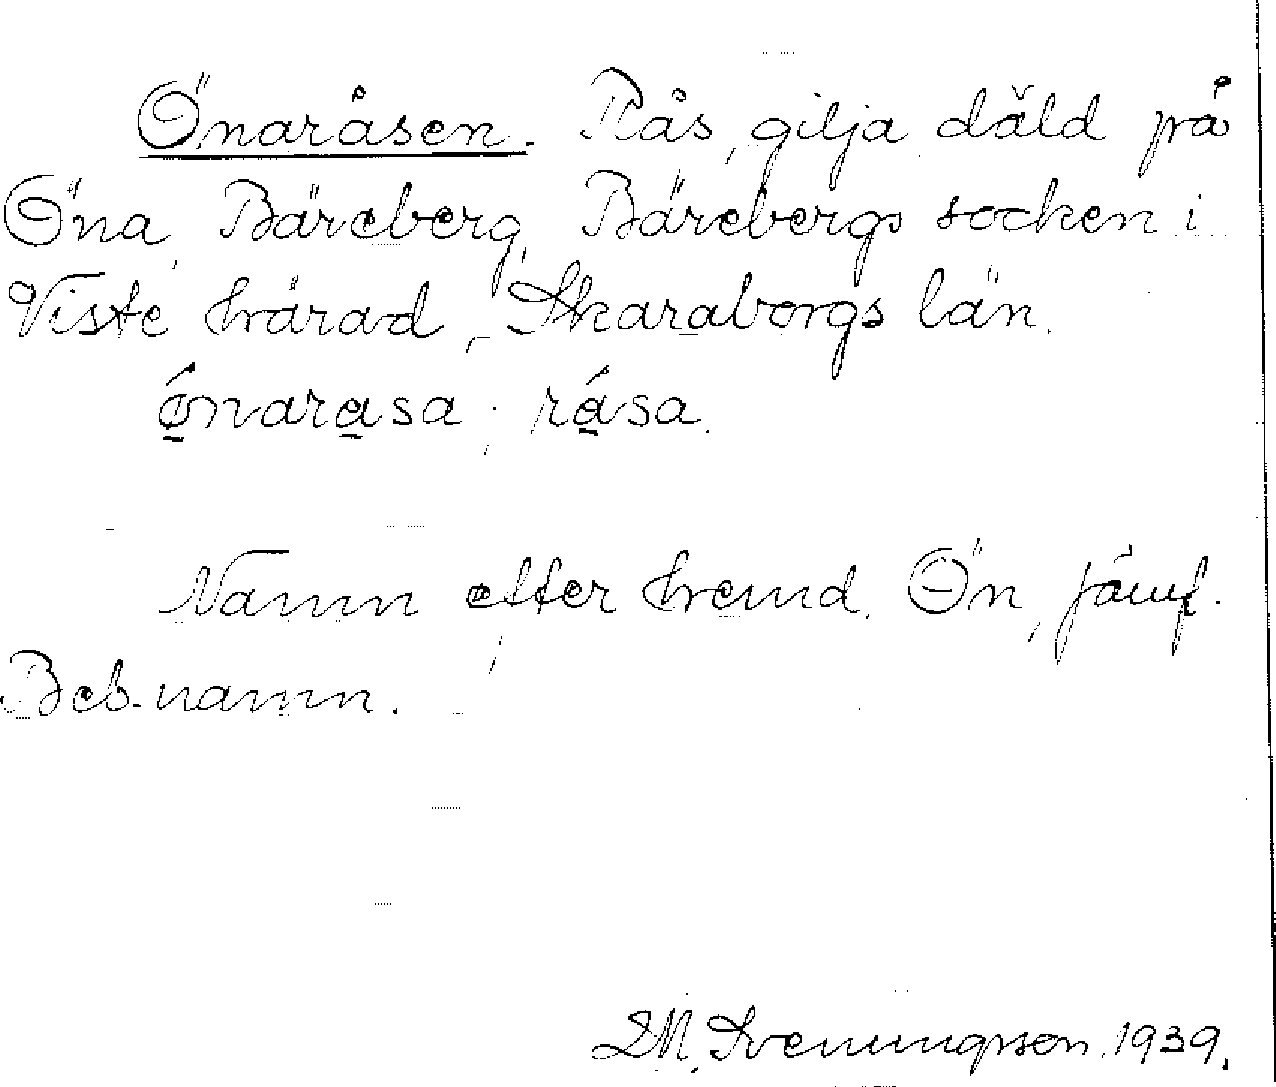 Önaråsen. Rås, gilja däld på
Öna, Bäreberg, Bärebergs socken i
Viste härad, Skaraborgs län.
ǿnarasa; rása.
Namn efter hemd. Ön, jämf.
Beb.namn.
Svenungsson 1939.